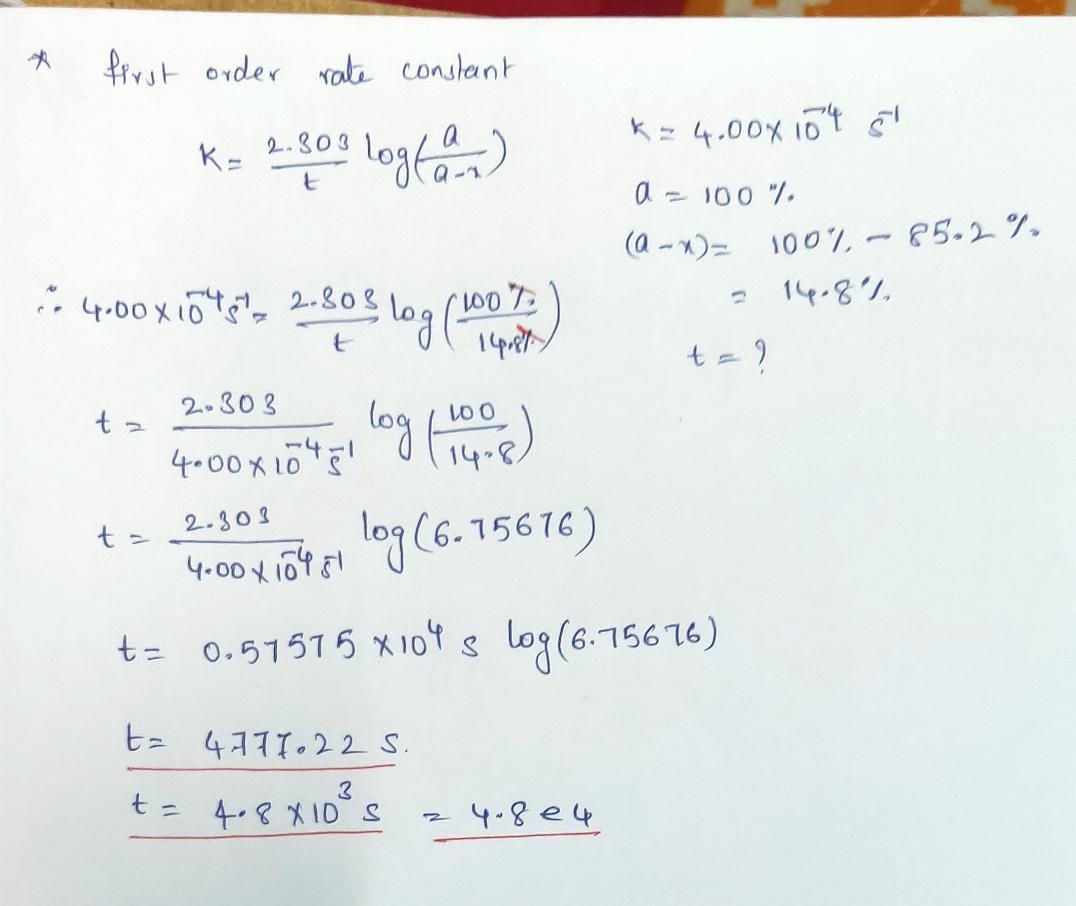 * first order rate constant
K = 2.303/t log(a/a-x)
K = 4.00 × 10⁻⁴ s⁻¹
a = 100 %.
(a-x) = 100% - 85.2 %.
= 14.8%.
t = ?
∴ 4.00×10⁻⁴ s⁻¹ = 2.303/t log(100%/14.8%)
t = 2.303/4.00×10⁻⁴ s⁻¹ log(100/14.8)
t = 2.303/4.00×10⁻⁴ s⁻¹ log(6.75676)
t = 0.57575 ×10⁴ s log(6.75676)
t = 4777.22 s.
t = 4.8 × 10³ s = 4.8 e4